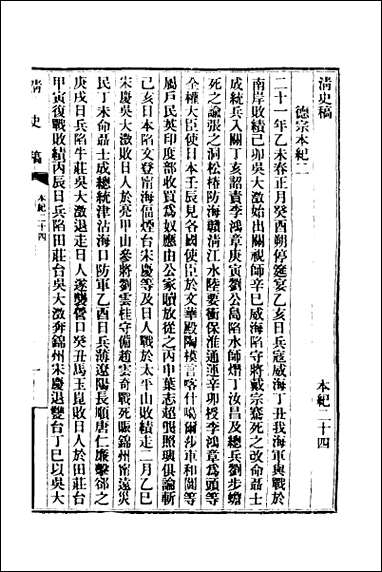 清史稿　本紀二十四
德宗本紀二
二十一年乙未春正月癸酉朔停筵宴乙亥日兵寇威海丁丑我海軍與戰於
南岸敗績己卯吳大澂始出關視師辛巳威海陷守將戴宗騫死之改命聶士
成統兵入關丁亥詔責李鴻章庚寅劉公島陷水師熸丁汝昌及總兵劉步蟾
死之諭張之洞松椿防海贛清江水陸要衝保淮通運辛卯授李鴻章爲頭等
全權大臣使日本壬辰見各國使臣於文華殿陶模言喀什噶爾莎車和闐等
屬戶民英印度部收買爲奴應由公家贖放從之丙申葉志超龔照璵俱論斬
己亥日本陷文登甯海偪煙台宋慶等及日人戰於太平山敗績走二月乙巳
宋慶吳大澂敗日人於亮甲山參將劉雲桂守備趙雲奇戰死賑錦州甯遠災
民丁未命聶士成總統津沽海口防軍乙酉日兵薄遼陽長順唐仁廉擊卻之
庚戌日兵陷牛莊吳大澂退走日人遂襲營口癸丑馬玉崑敗日人於田莊台
甲寅復戰敗績丙辰日兵陷田莊台吳大澂奔錦州宋慶退雙台丁巳以吳大
清史稿　本紀二十四　一